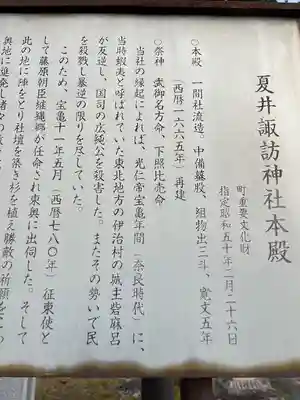 夏井諏訪神社本殿
町重要文化財
指定昭和五十年二月二十六日
○本殿 一間社流造、中備蟇股、組物出三斗、寛文五年
(西暦一六六五年)再建
○祭神 武御名方命、下照比売命
当社の縁起によれば、光仁帝宝亀年間(奈良時代)に、
当時蝦夷と呼ばれていた東北地方の伊治村の城主砦麻呂
が反逆し、国司の広純公を殺害した。またその勢いで民
を殺戮し暴逆の限りを尽していた。
このため、宝亀十一年五月(西暦七八〇年)征東使と
して藤原朝臣継縄郷が任命され東奥に出向した。そして
此の地に陣をとり社壇を築き杉を植え勝敵の祈願をこ
奥地に進発し